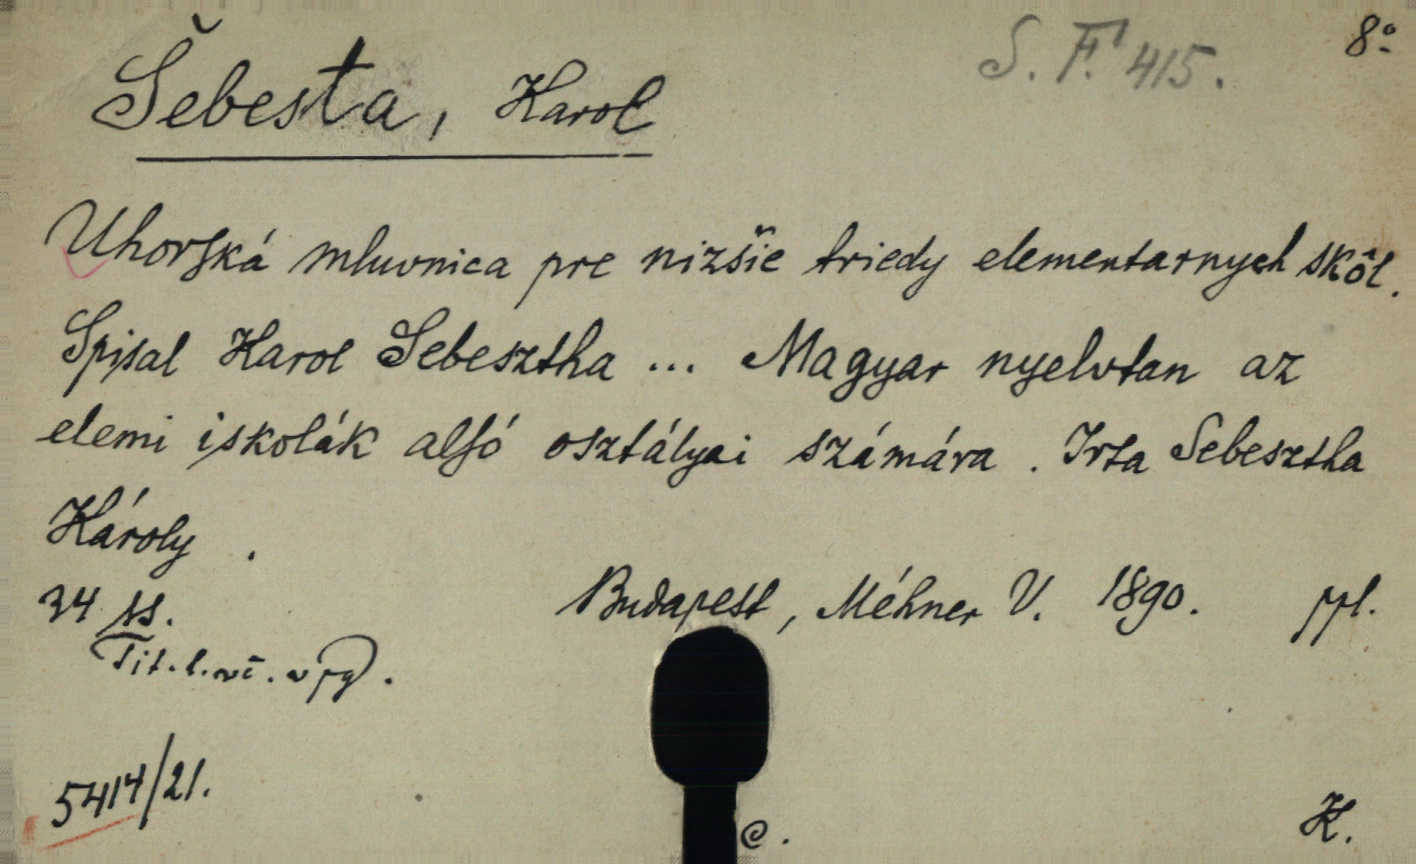 S. F. 415.
8°
Šebesta, Karol
Uhorská mluvnica pre nizšïe triedy elementarnych skôl.
Spisal Karol Sebesztha ... Magyar nyelvtan az
elemi iskolák alsó osztályai számára . Irta Sebesztha
Károly .
34 ss.
Budapest, Méhner V. 1890. ppl.
Tit. l.
5414/21.
K.